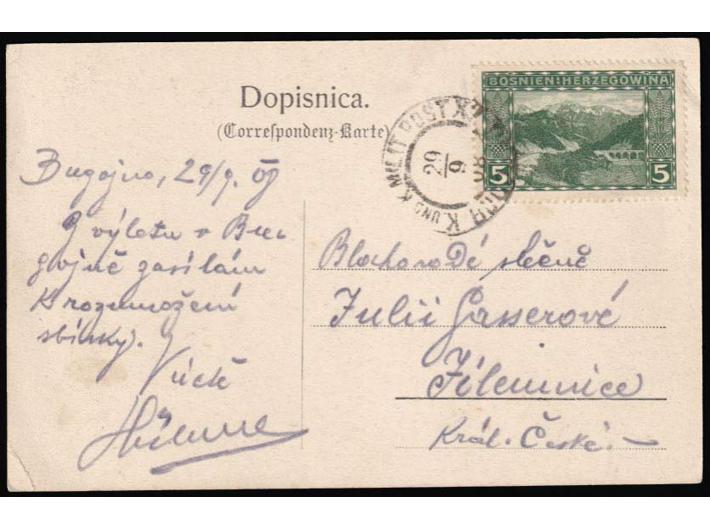 Dopisnica.
(Correspondenz-Karte)
BOSNIEN-HERZEGOWINA
5 5
K. UND K. MILIT. POST X
29
9
08
Bugojno, 29/9. 08
Z výletu v Bu-
gojně zasílám
K rozmnožení
sbírky.
Blahorodé slečně
Julii Gasserové
Jilemnice
Král. České.